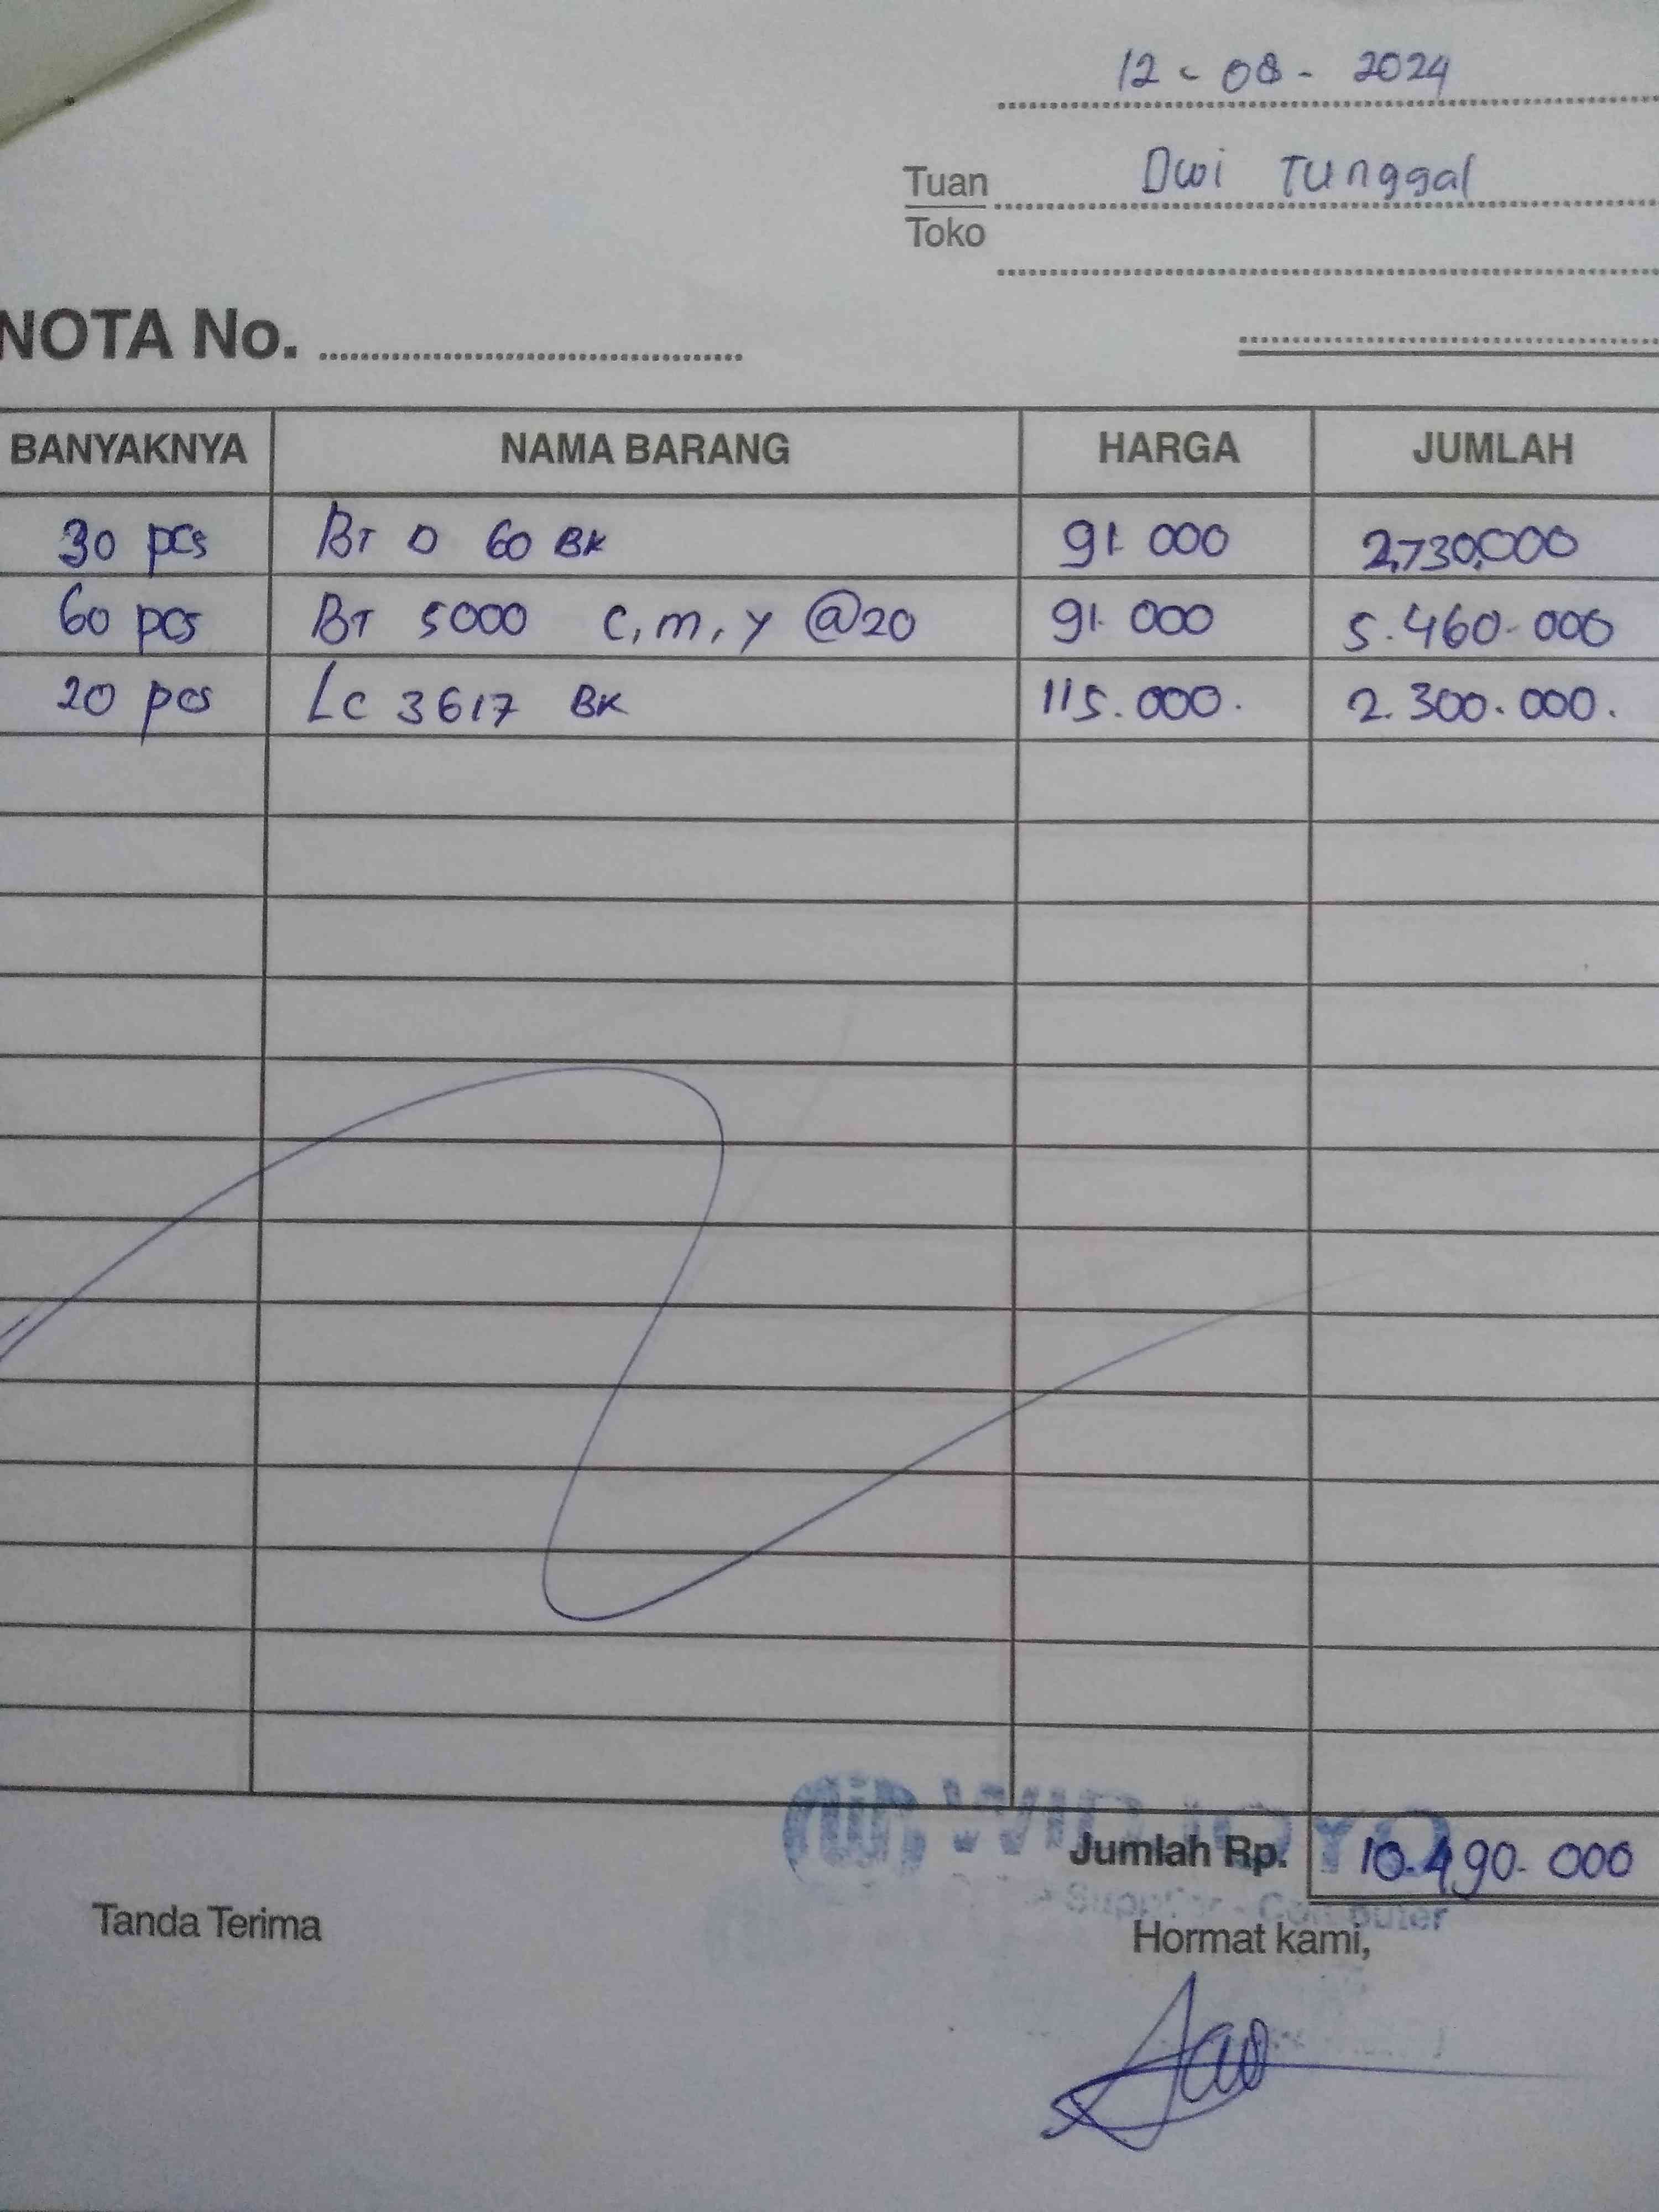 12 - 08 - 2024
Tuan Dwi Tunggal
Toko
NOTA No.
BANYAKNYA NAMA BARANG HARGA JUMLAH
30 pcs BT D 60 BK 91.000 2,730,000
60 pcs BT 5000 C, m, y @20 91.000 5.460.000
20 pcs LC 3617 BK 115.000. 2.300.000.
Jumlah Rp. 10.490.000
Tanda Terima Hormat kami,